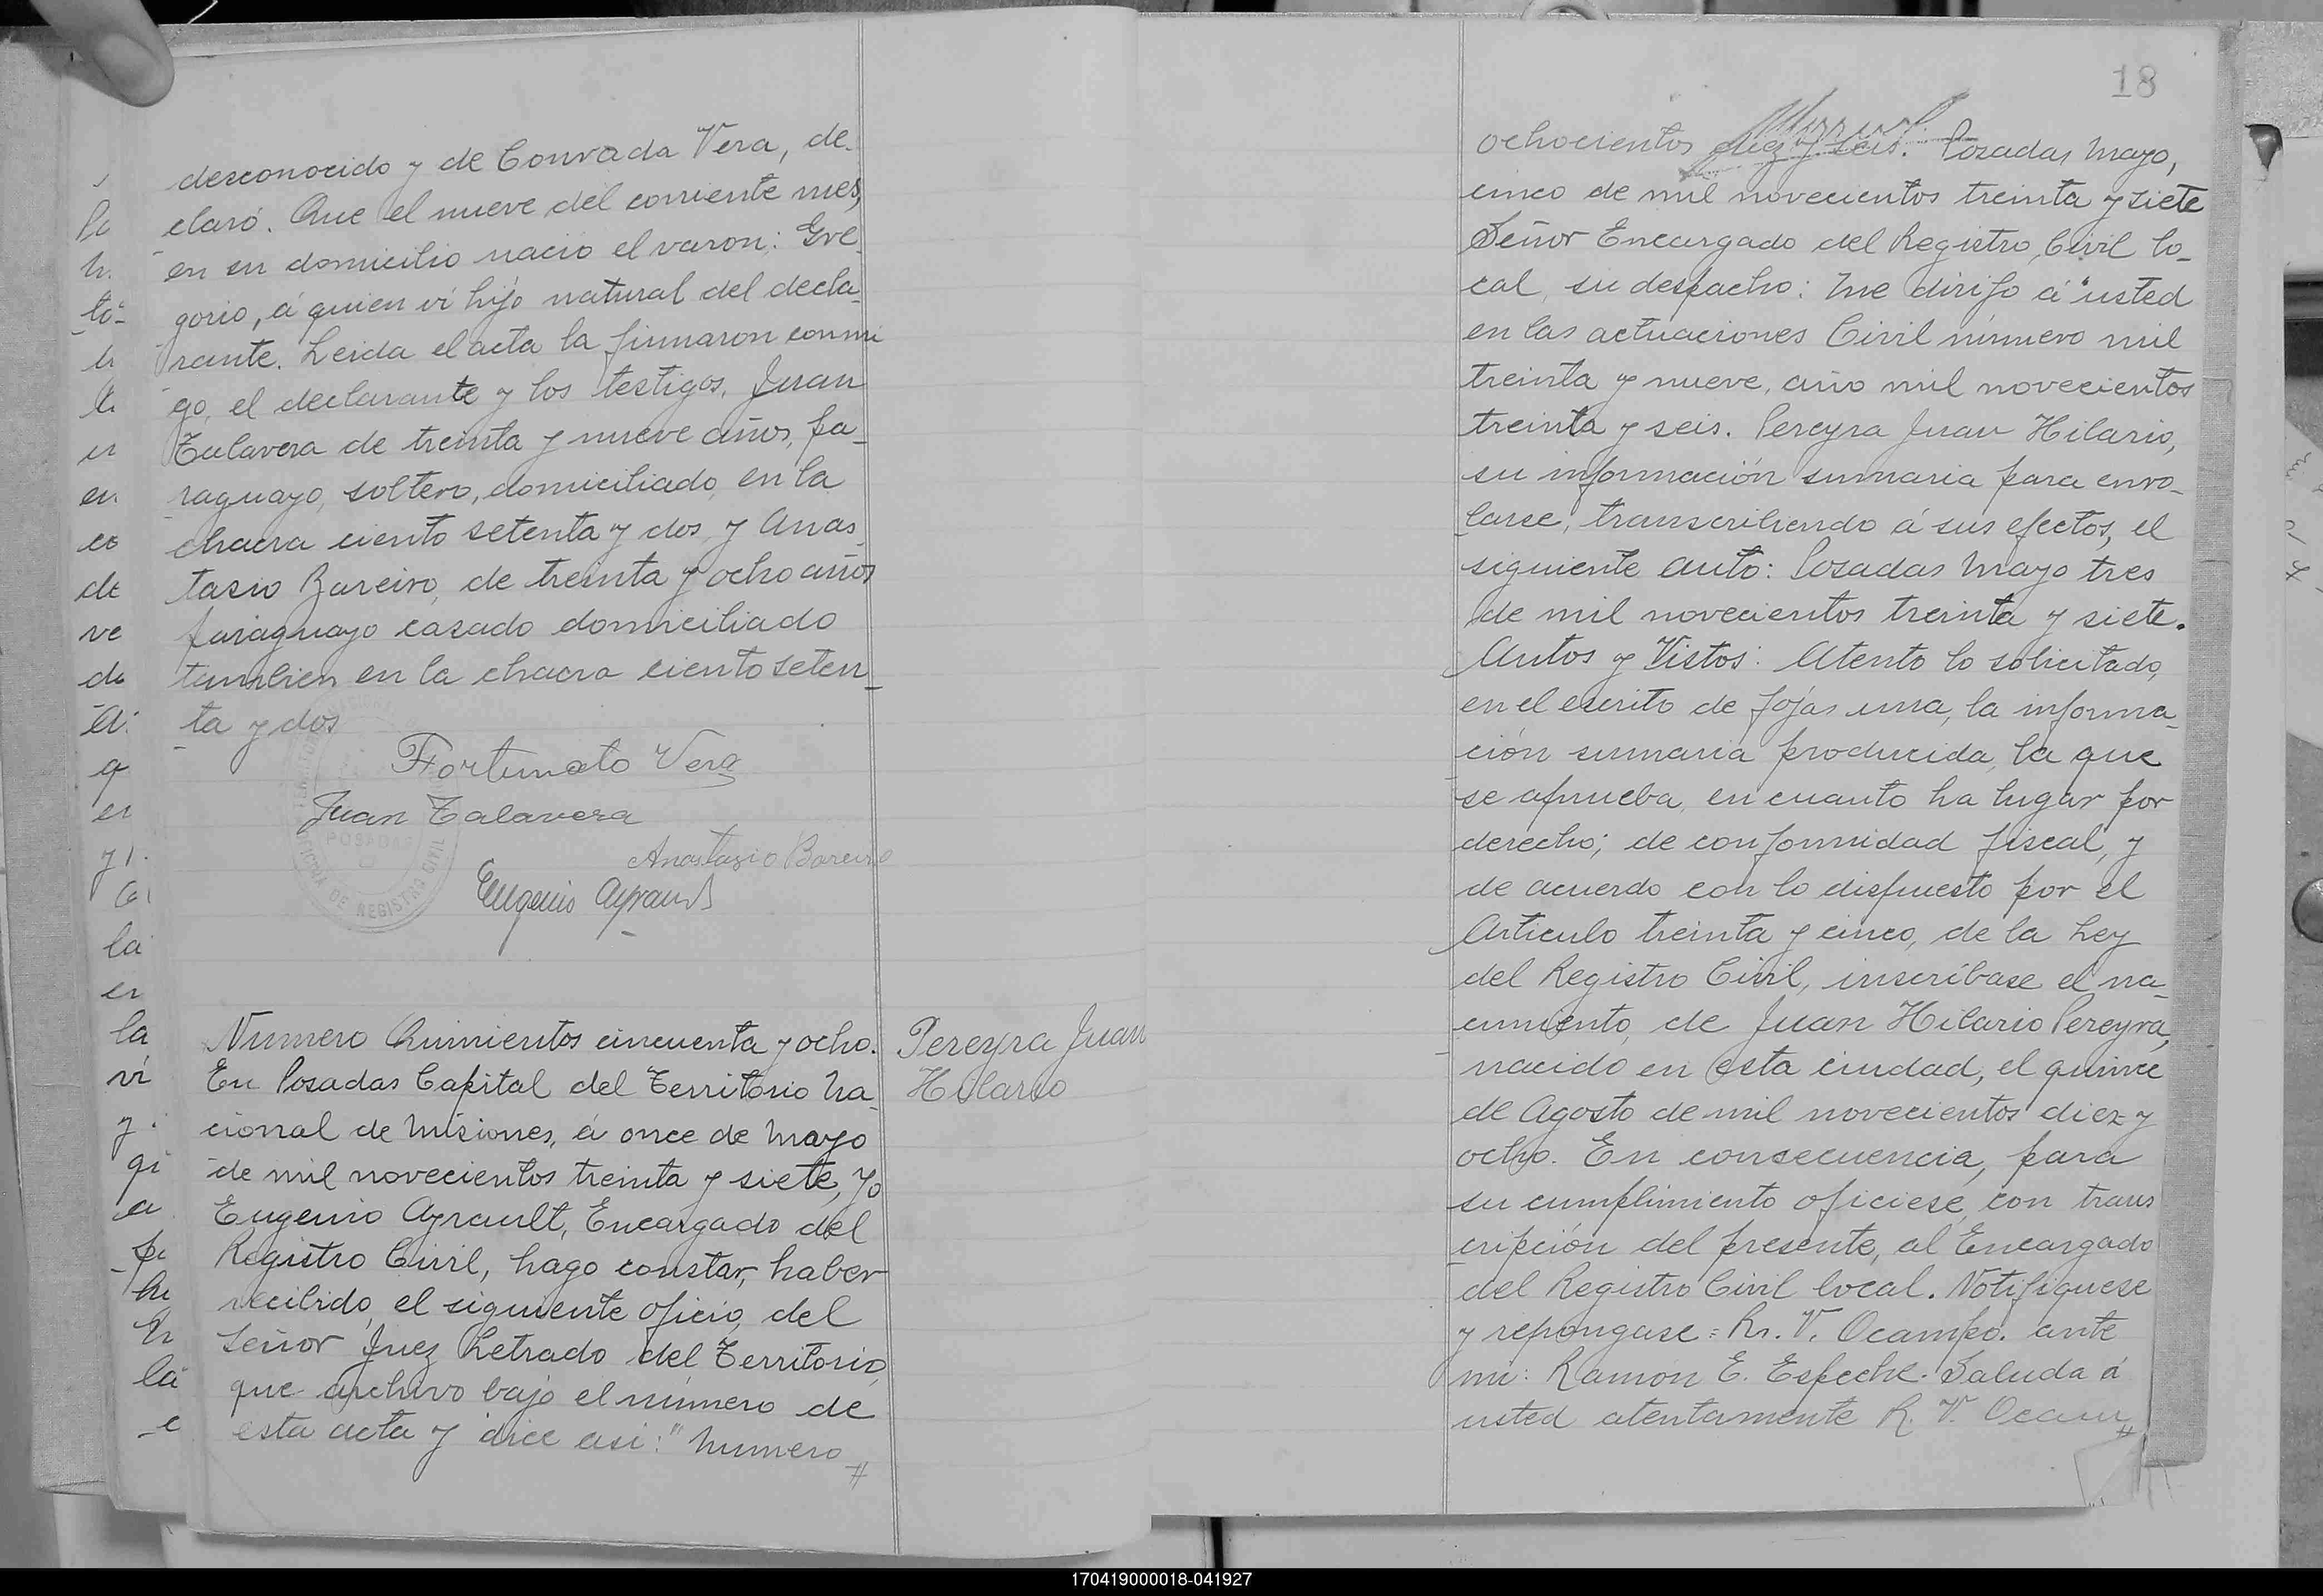 desconocido y de Conrada Vera, de-
claró. Que el nueve del corriente mes,
en su domicilio nació el varon: Gre-
gorio, á quien ví hijo natural del decla-
rante. Leida el acta la firmaron conmi
go, el declarante y los testigos, Juan
Talavera de treinta y nueve años, pa-
raguayo, soltero, domiciliado, en la
chacra ciento setenta y dos, y Anas-
tasio Bareiro, de treinta y ocho años
paraguayo casado domiciliado
tambien en la chacra ciento seten-
ta y dos
Fortunato Vera
Juan Talavera
Anastasio Bareiro
Eugenio Ayrault
POSADAS
OFICINA DE REGISTRO CIVIL
Numero Quinientos cincuenta y ocho.
En Posadas Capital del Territorio Na-
cional de Misiones, á once de Mayo
de mil novecientos treinta y siete, Yo
Eugenio Ayrault, Encargado del
Registro Civil, hago constar, haber
recibido, el siguiente oficio, del
Señor Juez Letrado del Territorio,
que archivo bajo el número de
esta acta y dice asi: "Numero
Pereyra Juan
Hilario
18
ochocientos diez y seis. Posadas Mayo,
cinco de mil novecientos treinta y siete
Señor Encargado del Registro Civil lo-
cal, su despacho: Me dirijo á usted
en las actuaciones Civil número mil
treinta y nueve, año mil novecientos
treinta y seis. Pereyra Juan Hilario,
su información sumaria para enro-
larse, transcribiendo á sus efectos, el
siguiente auto: Posadas Mayo tres
de mil novecientos treinta y siete.
Autos y Vistos: Atento lo solicitado,
en el escrito de fojas una, la informa-
ción sumaria producida, la que
se aprueba, en cuanto ha lugar por
derecho; de conformidad fiscal, y
de acuerdo con lo dispuesto por el
Articulo treinta y cinco, de la Ley
del Registro Civil, inscríbase el na-
cimiento, de Juan Hilario Pereyra,
nacido en esta ciudad, el quince
de Agosto de mil novecientos diez y
ocho. En consecuencia, para
su cumplimiento oficiese, con trans
cripción del presente, al Encargado
del Registro Civil local. Notifiquese
y repongase = R. V. Ocampo. ante
mi: Ramón E. Espeche. Saluda á
usted atentamente R. V. Ocam
170419000018-041927